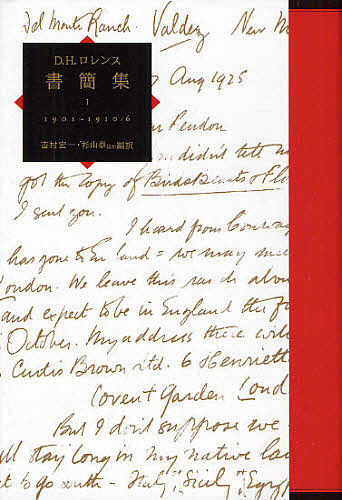 Del Monte Ranch. Valdez New M
D.H.ロレンス
書簡集
1
1901~1910/6
吉村宏一・杉山泰ほか編訳
7 Aug 1925
Pendon
didn't tell m
got the copy of Birds Beasts & Flo
I sent you.
I heard from Conway
has gone to England = we may
London. We leave this ranch abou
and expect to be in England the fi
October. My address there will
Curtis Brown Ltd. 6 Henriett
Covent Garden Lond
But I don't suppose we
ll stay long in my native la
t to go south - Italy, Sicily or Egyp